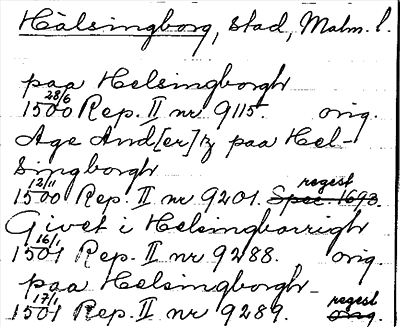 Hälsingborg, stad, Malm. l.
paa Helsingborgh
1500 28/6 Rep. II nr 9115. orig.
Åge And[er]ß paa Hel-
singborgh
1500 12/11 Rep. II nr 9201. Spec. 1693. regest
Givet i Helsingbarrigh
1501 16/1 Rep. II nr 9288. orig.
paa Helsingborgh
1501 17/1 Rep. II nr 9289. orig. regest